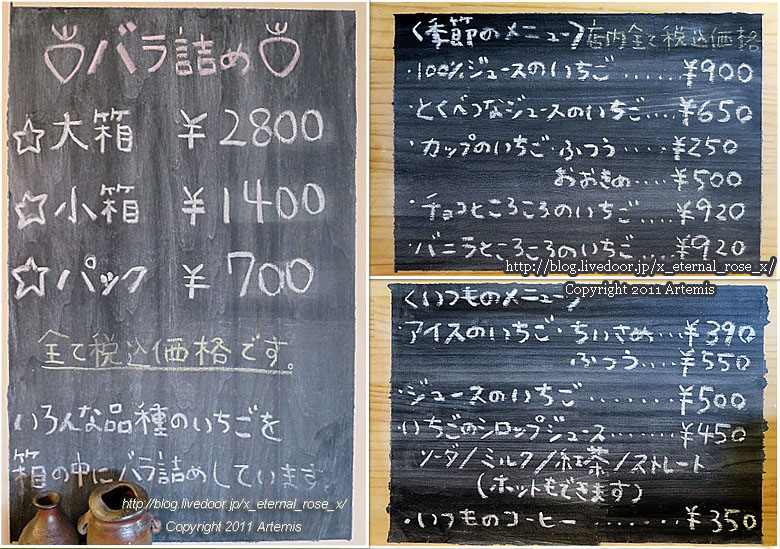 バラ詰め
☆大箱 ¥2800
☆小箱 ¥1400
☆パック ¥700
全て税込価格です。
いろんな品種のいちごを
箱の中にバラ詰めしています
http://blog.livedoor.jp/x_eternal_rose_x/
Copyright 2011 Artemis
〈季節のメニュー〉店内全て税込価格
・100%ジュースのいちご......¥900
・とくべつなジュースのいちご....¥650
・カップのいちご・ふつう.....¥250
おおきめ....¥500
・チョコところころのいちご....¥920
・バニラところころのいちご...¥920
http://blog.livedoor.jp/x_eternal_rose_x/
Copyright 2011 Artemis
〈いつものメニュー〉
・アイスのいちご・ちいさめ...¥390
ふつう....¥550
・ジュースのいちご........¥500
・いちごのシロップジュース.......¥450
ソーダ/ミルク/紅茶/ストレート
(ホットもできます)
・いつものコーヒー........¥350